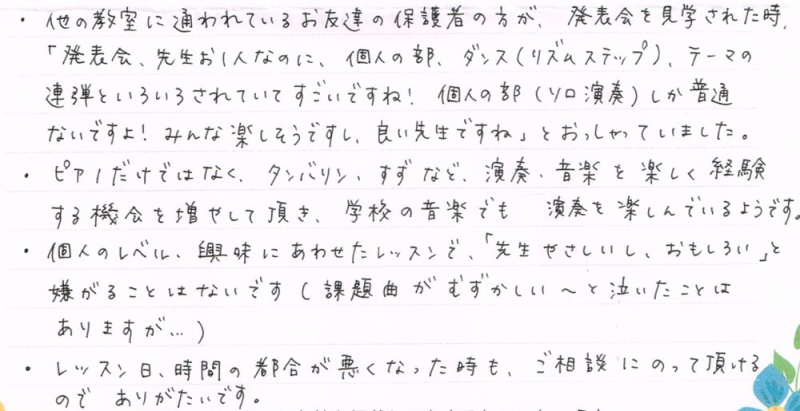 ・他の教室に通われているお友達の保護者の方が、発表会を見学された時、
「発表会、先生お1人なのに、個人の部、ダンス(リズムステップ)、テーマの
連弾といろいろされていてすごいですね! 個人の部(ソロ演奏)しか普通
ないですよ! みんな楽しそうですし、良い先生ですね」とおっしゃっていました。
・ピアノだけではなく、タンバリン、すずなど、演奏・音楽を楽しく経験
する機会を増やして頂き、学校の音楽でも 演奏を楽しんでいるようです。
・個人のレベル、興味にあわせたレッスンで、「先生やさしいし、おもしろい」と
嫌がることはないです(課題曲がむずかしい〜と泣いたことは
ありますが…)
・レッスン日、時間の都合が悪くなった時も、ご相談にのって頂ける
ので ありがたいです。